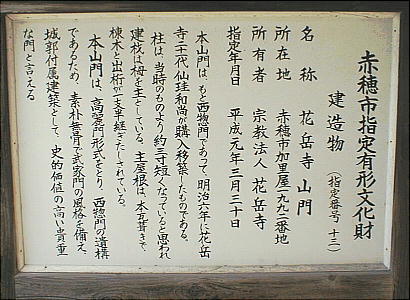 赤穂市指定有形文化財
建造物
(指定番号 十三)
名称 花岳寺山門
所在地 赤穂市加里屋一九九二番地
所有者 宗教法人 花岳寺
指定年月日 平成元年三月三十日
本山門は、もと西惣門であって、明治六年に花岳
寺二十代仙珪和尚が購入移築したものである。
柱は、当時のものより約三寸短くなっていると思われ
建材は栂を主としている。主屋根は、本瓦葺きで、
棟木と出桁が一支半継ぎたしされている。
本山門は、高麗門形式をとり、西惣門の遺構
であるため、素朴重骨で武家門の風格を備え、
城郭付属建築として、史的価値の高い貴重
な門と言える